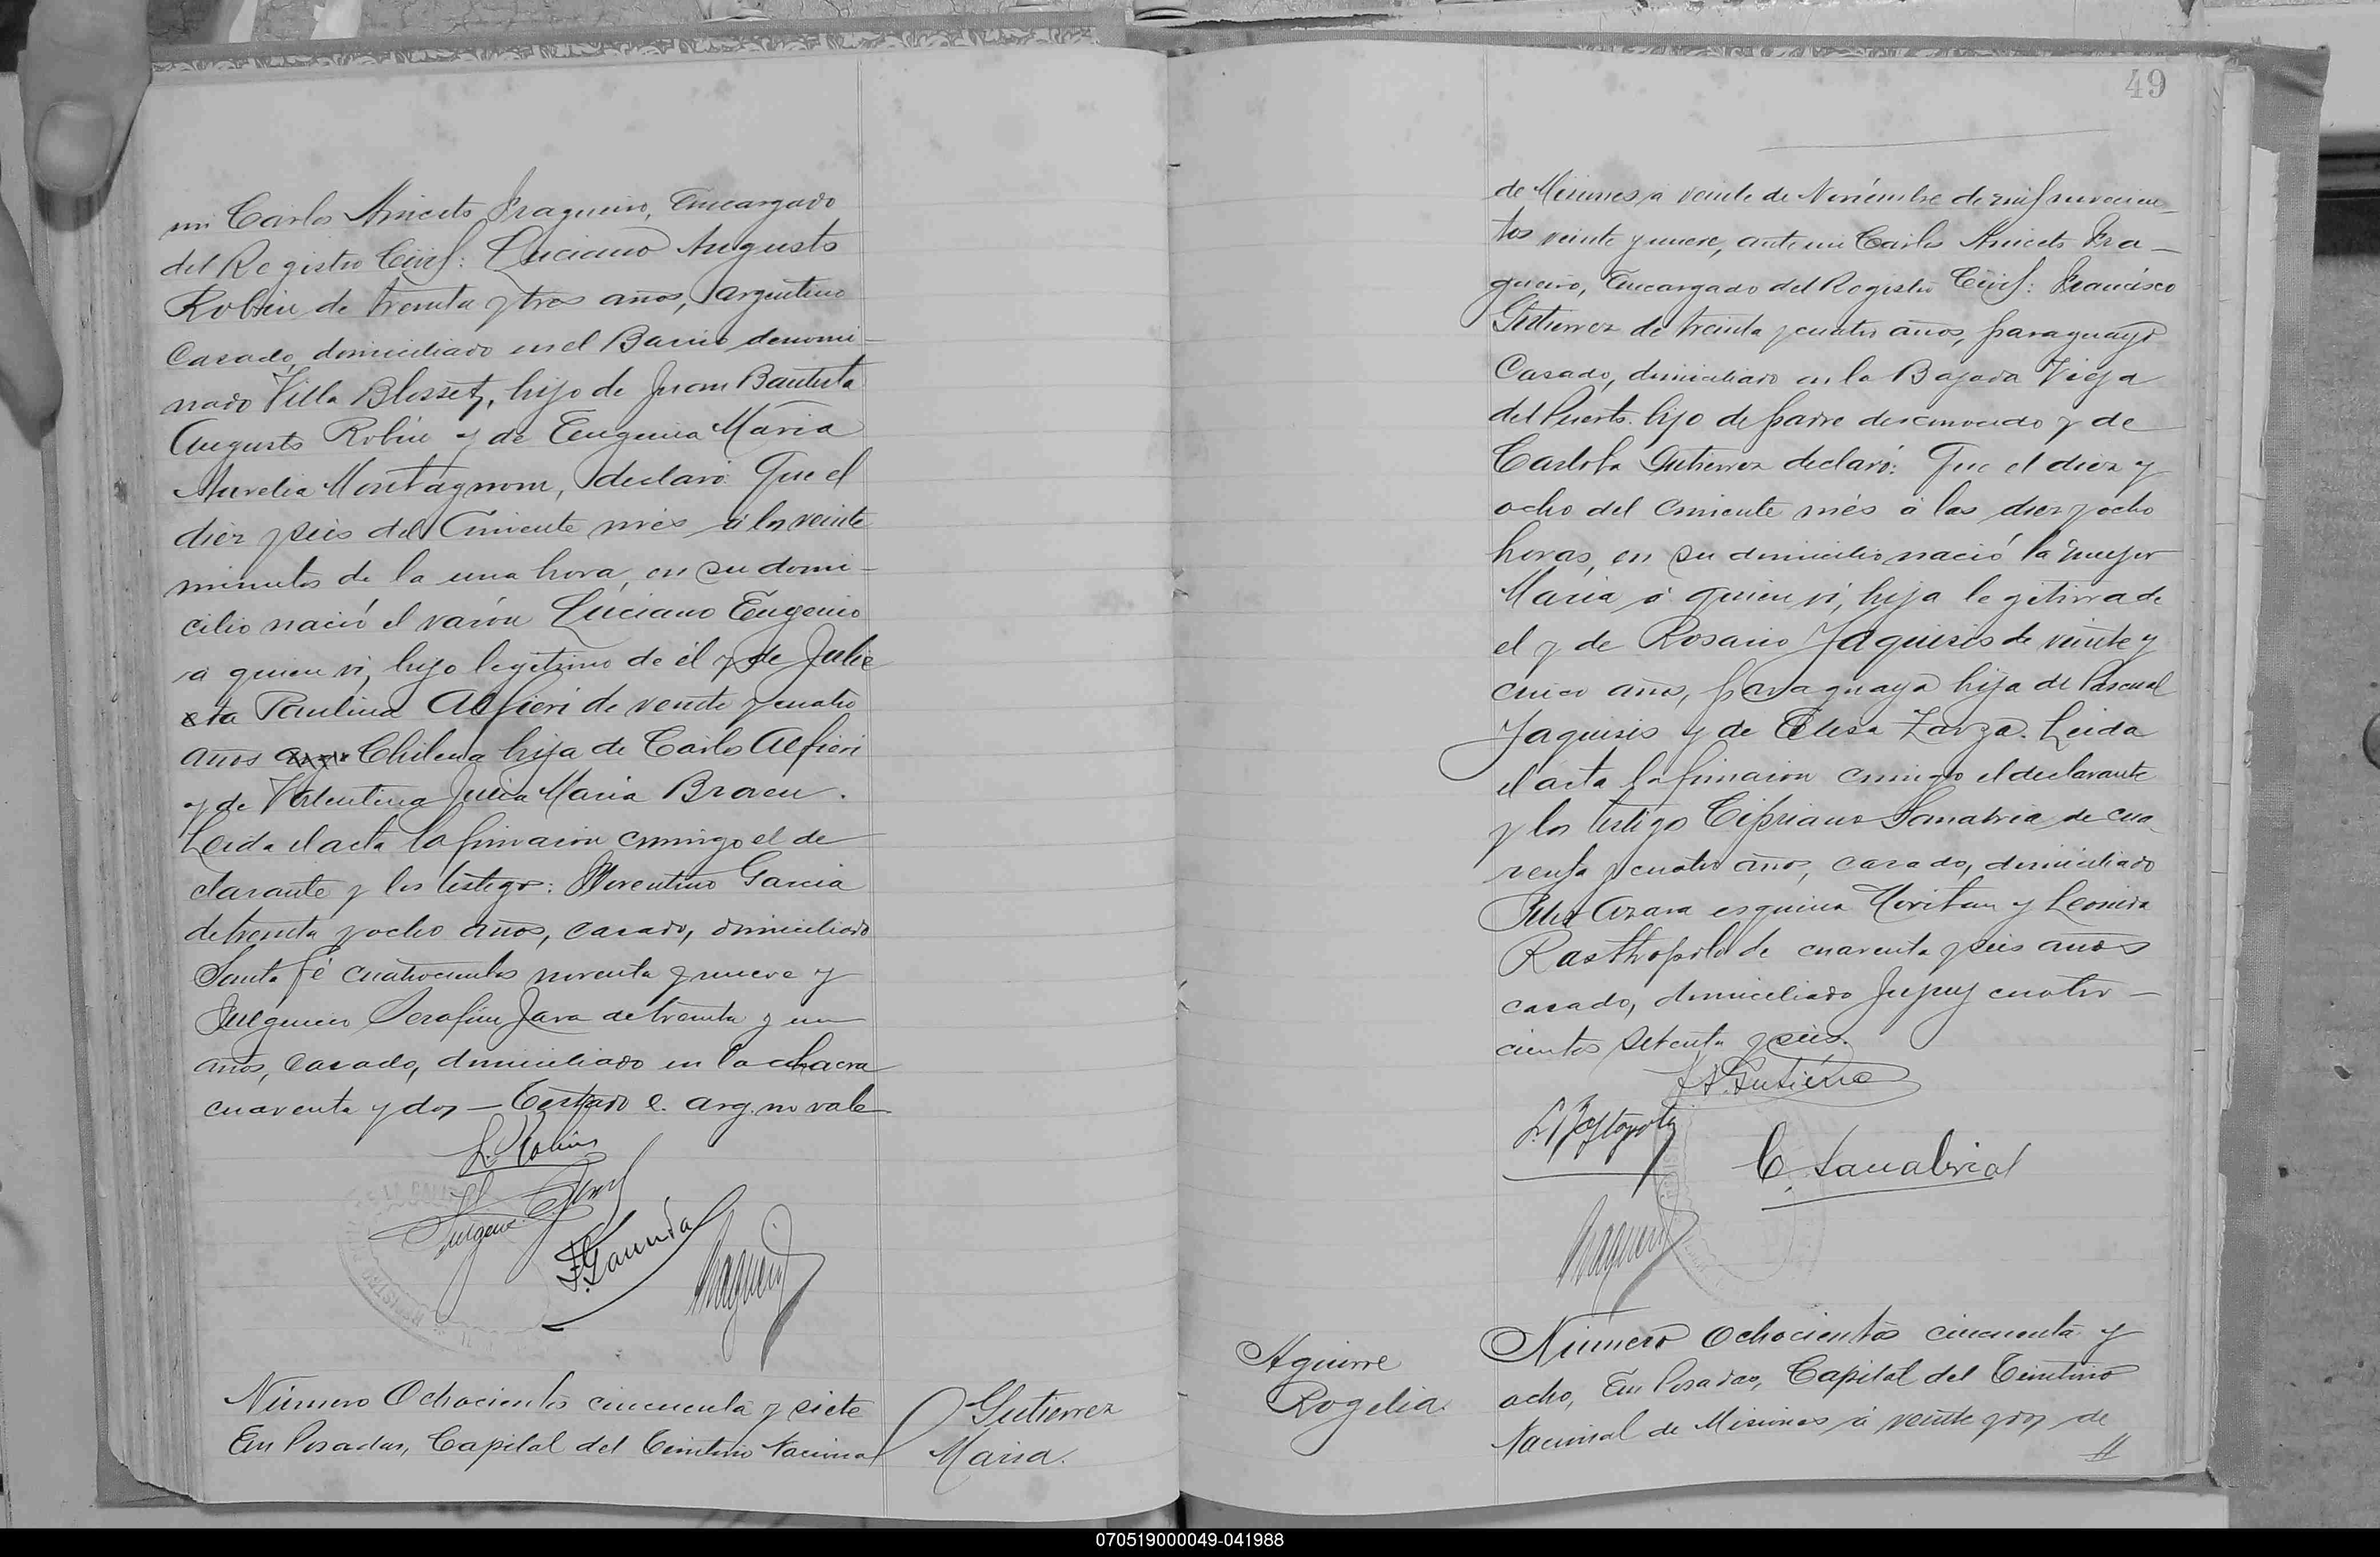 mi Carlos Aniceto Fragueiro, Encargado
del Registro Civil: Luciano Augusto
Robin de treinta y tres años, argentino
Casado, domiciliado en el Barrio denomi-
nado Villa Blosset, hijo de Juan Bautista
Augusto Robin y de Eugenia Maria
Aurelia Montagnom, declaró: Que el
diez y seis del Corriente més á los veinte
minutos de la una hora, en su domi-
cilio nació el varón Luciano Eugenio
á quien vi, hijo legitimo de él y de Julie
ta Paulina Alfieri de veinte y cuatro
años Chilena hija de Carlos Alfieri
y de Valentina Julia Maria Braen.
Leida el acta la firmaron conmigo el de
clarante y los testigos: Florentino Garcia
de treinta y ocho años, casado, domiciliado
Santa Fé cuatrocientos noventa y nueve y
Fulgencio Serafin Jara de treinta y un
años, casado, domiciliado en la chacra
cuarenta y dos — Testado e. arg. no vale
L. Robin
Número Ochocientos cincuenta y siete
En Posadas, Capital del Territorio Nacional
Gutierrez
Maria.
49
de Misiones á veinte de Noviembre de mil novecien-
tos veinte y nueve, ante mi Carlos Aniceto Fra-
gueiro, Encargado del Registro Civil: Francisco
Gutierrez de treinta y cuatro años, paraguayo
Casado, domiciliado en la Bajada Vieja
del Puerto. hijo de padre desconocido y de
Carlota Gutierrez declaró: Que el diez y
ocho del corriente més á las diez y ocho
horas, en su domicilio nació la mujer
Maria á quien vi, hija legitima de
el y de Rosario Yaquisis de veinte y
cinco años, paraguaya hija de Pascual
Yaquisis y de Elisa Zarza. Leida
el acta la firmaron conmigo el declarante
y los testigo Cipriano Sanabria de cua-
renta y cuatro años, casado, domiciliado
Felix Azara esquina Moritan y Leonida
de cuarenta y seis años
casado, domiciliado Jujuy cuatro-
cientos setenta y seis.
F. A. Gutiérre
C. Sanabria
Aguirre
Rogelia.
Número Ochocientos cincuenta y
ocho, En Posadas, Capital del Territorio
Nacional de Misiones á veinte y dos de
070519000049-041988